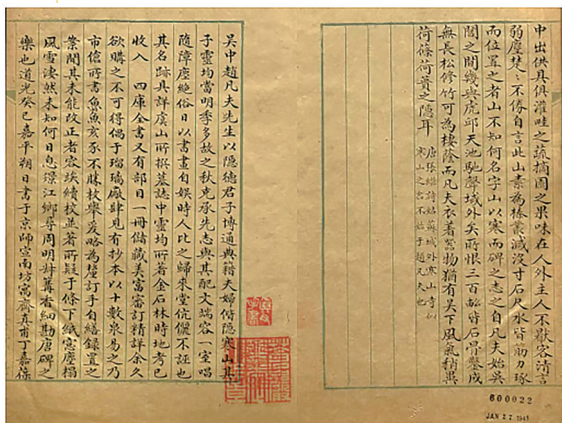 中出供具俱灌畦之蔬摘園之果味在人外主人不猒客清言
弱塵〻不倦自言此山素為榛叢滅沒寸石尺水皆筋刀琢
而位置之者山不知何名字山以寒而碑之志之自凡夫始吳
闔之間幾與虎邱天池馳聲域外矣所恨三百畝皆石骨鑿成
無長松修竹可為棲蔭而凡夫衣着器物猶有吴下風氣稍異
荷蓧荷蕢之隱耳
唐張繼詩姑蘇城外寒山寺似
寒山之名不始于趙凡夫也
吳中趙凡夫先生以隱德君子博通典籍夫婦偕隱寒山其
子靈均當明季多故之秋克承先志與其配文端容一室唱
隨障塵絶俗日以書畫自娛時人比之歸來堂伉儷不誣也
其名跡具詳虞山所撰墓誌中靈均所著金石林時地考已
收入 四庫全書又有部目一冊儲藏美富審訂精詳余久
欲購之不可得偶于瑠璃廠肆見有抄本以十數泉易之乃
市儈所書魚魚亥豕不勝枚舉爰略為釐訂手自繕録置之
業間其未能改正者容俟續校並著所疑于條下緘窓塵榻
風雪淒然未知何日息影江鄉尋周明篝香細勘唐碑之
樂也道光癸巳嘉平朔日書于京師宣南坊寓齋甫丁嘉葆
600022
JAN 27 1941